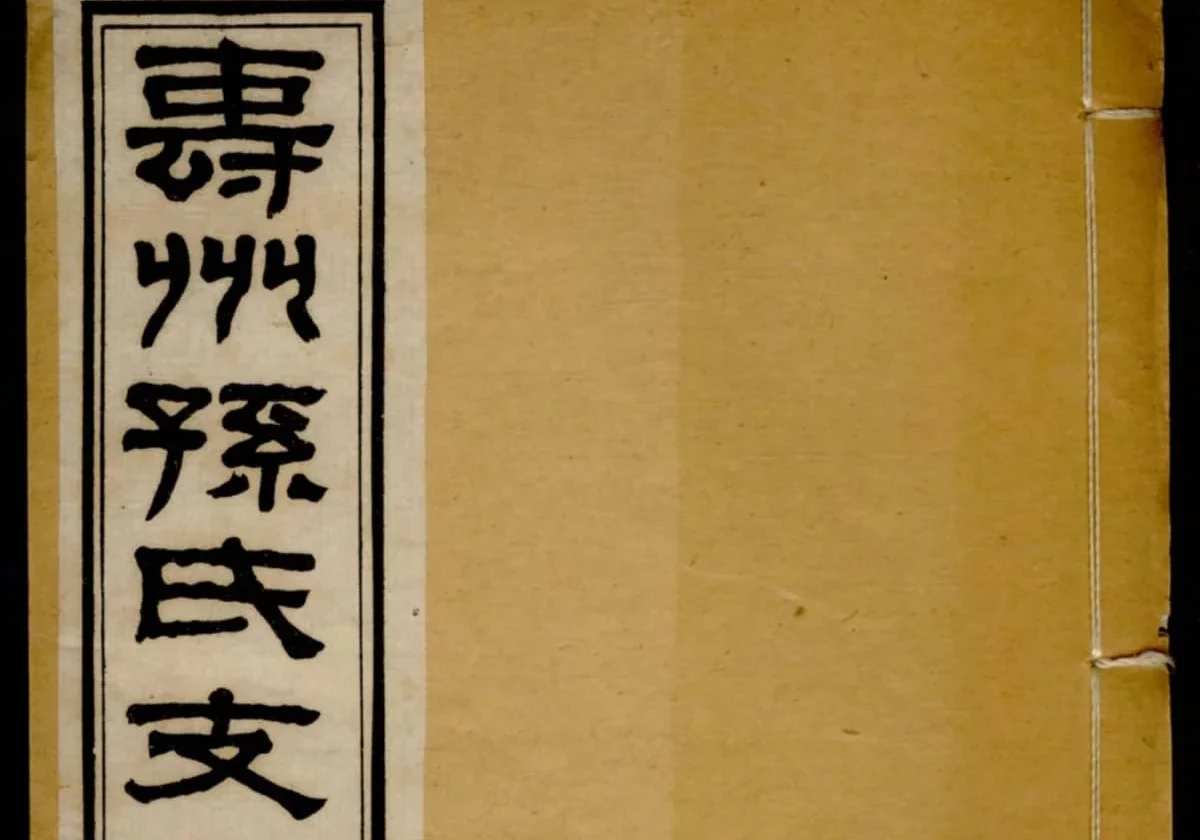 壽州孫氏支